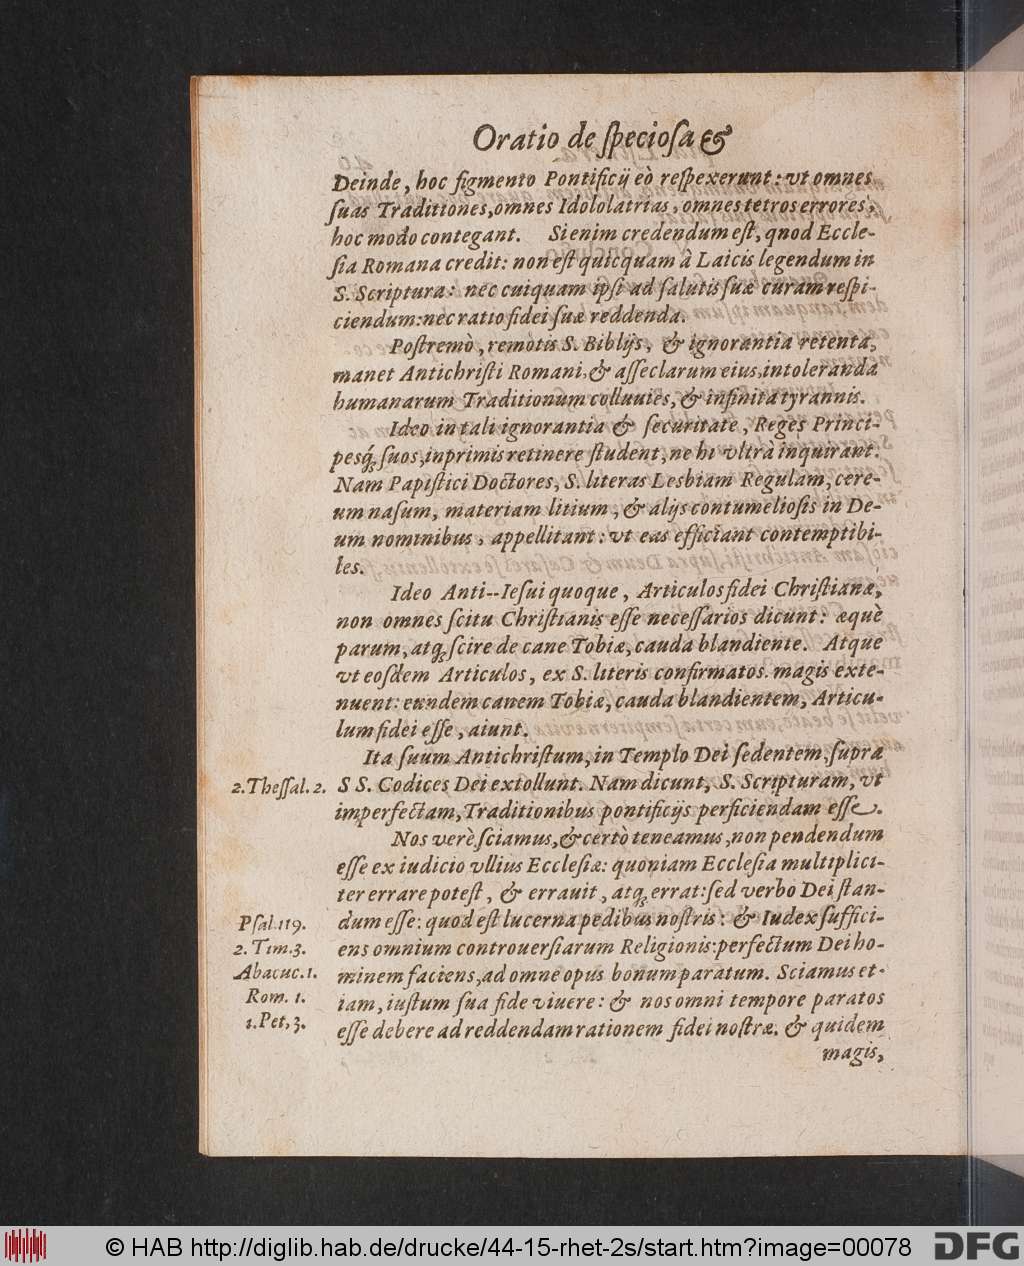 Oratio de ſpecioſa &
Deinde, hoc figmento Pontificij eò reſpexerunt: vt omnes
ſuas Traditiones, omnes Idololatrias, omnes tetros errores,
hoc modo contegant. Si enim credendum eſt, qnod Eccle-
ſia Romana credit: non eſt quicquam à Laicis legendum in
S. Scriptura: nec cuiquam ipſi ad ſalutis ſuæ curam reſpi-
ciendum: nec ratio fidei ſuæ reddenda.
Poſtremò, remotis S. Biblijs, & ignorantia retenta,
manet Antichriſti Romani, & aſſeclarum eius, intoleranda
humanarum Traditionum colluuies, & infinita tyrannis.
Ideo in tali ignorantia & ſecuritate, Reges Princi-
pesq́; ſuos, inprimis retinere ſtudent, ne hi vltrà inquirant.
Nam Papiſtici Doctores, S. literas Lesbiam Regulam, cere-
um naſum, materiam litium, & alijs contumelioſis in De-
um nominibus, appellitant: vt eas efficiant contemptibi-
les.
Ideo Anti--Ieſui quoque, Articulos fidei Chriſtianæ,
non omnes ſcitu Chriſtianis eſſe neceſſarios dicunt: æquè
parum, atq́; ſcire de cane Tobiæ, cauda blandiente. Atque
vt eoſdem Articulos, ex S. literis confirmatos. magis exte-
nuent: eundem canem Tobiæ, cauda blandientem, Articu-
lum fidei eſſe, aiunt.
Ita ſuum Antichriſtum, in Templo Dei ſedentem, ſupra
2. Theſſal. 2. S S. Codices Dei extollunt. Nam dicunt, S. Scripturam, vt
imperfectam, Traditionibus pontificijs perficiendam eſſe.
Nos verè ſciamus, & certò teneamus, non pendendum
eſſe ex iudicio vllius Eccleſiæ: quoniam Eccleſia multiplici-
ter errare poteſt, & errauit, atq́; errat: ſed verbo Dei ſtan-
Pſal. 119. dum eſſe: quod eſt lucerna pedibus noſtris: & Iudex ſuffici-
2. Tim. 3. ens omnium controuerſiarum Religionis: perfectum Dei ho-
Abacuc. 1. minem faciens, ad omne opus bonum paratum. Sciamus et-
Rom. 1. iam, iuſtum ſua fide viuere: & nos omni tempore paratos
1. Pet, 3. eſſe debere ad reddendam rationem fidei noſtræ. & quidem
magis,
© HAB http://diglib.hab.de/drucke/44-15-rhet-2s/start.htm?image=00078 DFG